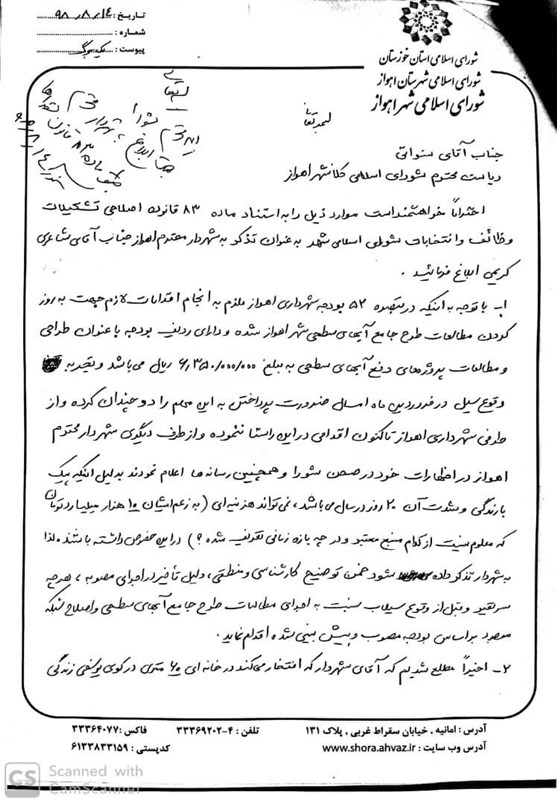 تاریخ: ۹۸/۸/۱٤
شماره:
پیوست: یک برگ
شورای اسلامی استان خوزستان
شورای اسلامی شهرستان اهواز
شورای اسلامی شهر اهواز
جناب آقای سنواتی
ریاست محترم شورای اسلامی کلانشهر اهواز
احتراماً خواهشمند است موارد ذیل را به استناد ماده ۸۳ قانون اصلاحی تشکیلات
وظائف و انتخابات شورای اسلامی شهر به عنوان تذکر به شهردار محترم اهواز جناب آقای شاعری
کریمی ابلاغ فرمائید.
۱- با توجه به اینکه در تبصره ۵۲ بودجه شهرداری اهواز ملزم به انجام اقدامات لازم جهت به روز
کردن مطالعات طرح جامع آبهای سطحی شهر اهواز شده و دارای ردیف بودجه با عنوان طراحی
و مطالعات پروژه های دفع آبهای سطحی به مبلغ ۶/۳۵۰/۰۰۰/۰۰۰ ریال می باشد و تجربه
وقوع سیل در فروردین ماه امسال ضرورت پرداختن به این مهم را دو چندان کرده و از
طرفی شهرداری اهواز تاکنون اقدامی در این راستا ننموده و از طرف دیگری شهردار محترم
اهواز در اظهارات خود در صحن شورا و همچنین رسانه ها اعلام نمودند بدلیل اینکه پیک
بارندگی و شدت آن ۲۰ روز در سال می باشد، نمی تواند هزینه ای (به زعم ایشان ۱۰ هزار میلیارد تومان
که معلوم نیست از کدام منبع معتبر و در چه بازه زمانی تعریف شده؟) در این خصوص داشته باشند. لذا
به شهردار تذکر داده شود ضمن توضیح کارشناسی و منطقی، دلیل تأخیر در اجرای مصوبه، هرچه
سریعتر و قبل از وقوع سیلاب نسبت به اجرای مطالعات طرح جامع آبهای سطحی و اصلاح شبکه
معبر بر اساس بودجه مصوب و پیش بینی شده اقدام نماید.
۲- اخیراً مطلع شدیم که آقای شهردار که افتخار می کند در خانه ای ۶۵ متری در کوی یوسفی زندگی
آدرس: امانیه، خیابان سقراط غربی، پلاک ۱۳۱
تلفن: ۴-۳۳۳۶۹۲۰۲
فاکس: ۳۳۳۶۴۰۷۷
آدرس وب سایت: www.shora.ahvaz.ir
کدپستی: ۶۱۳۳۸۳۳۱۵۹
CS Scanned with
CamScanner